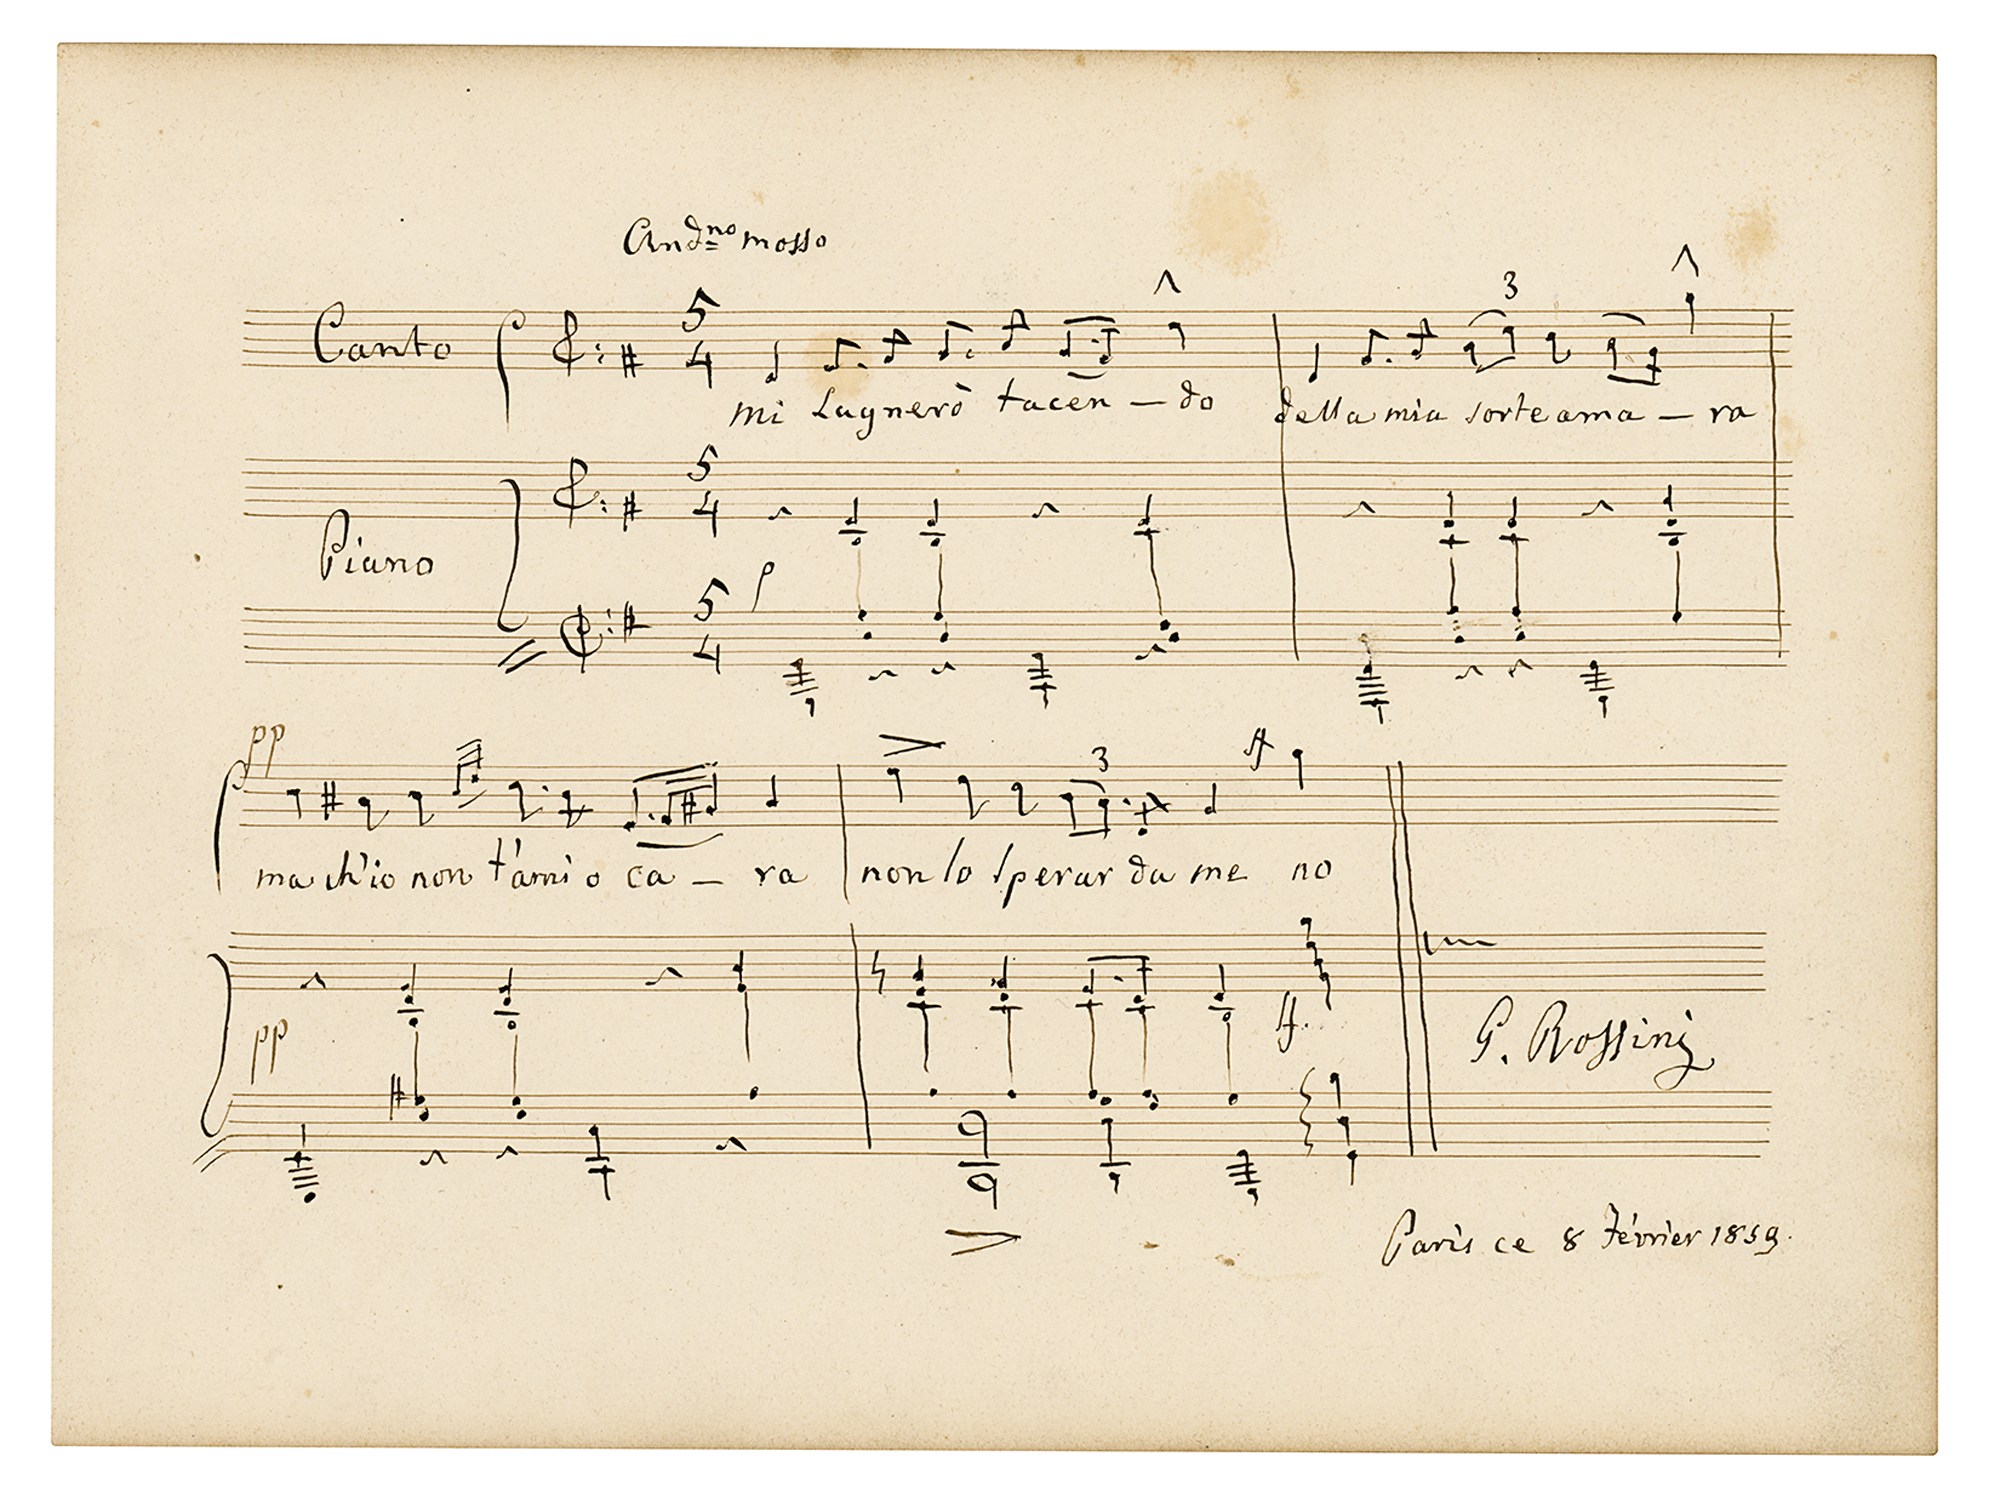 And.no mosso
Canto 5 4 3
mi lagnerò tacen – do della mia sorte ama – ra
Piano 5 4
p
5 4
pp 3 ff
ma ch'io non t'ami o ca – ra non lo sperar da me no
pp ff.
G. Rossini
Paris ce 8 Février 1859.